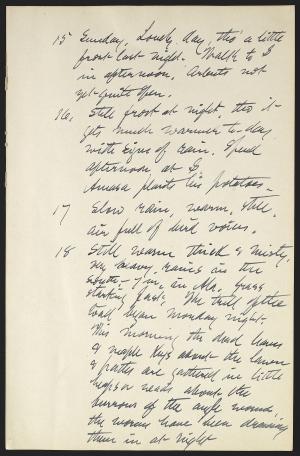 15 Sunday, Lovely day, tho' a little
frost last night. Walk to G
in afternoon. Arbutus not
yet quite open.
16. Still frost at night, tho it
gets much warmer to-day
with signs of rain. Spend
afternoon at G.
Amasa plants his potatoes.
17 Slow rain, warm, still,
air full of bird voices.
18 Still warm thick & misty,
very heavy rains in the
South - 7 in. in Ala. Grass
starting fast. The trill of the
toad began Monday night.
This morning the dead leaves
& maple keys about the lawn
& paths are gathered in little
heaps or heads about the
burrows of the angle worms,
the worms have been drawing
them in at night